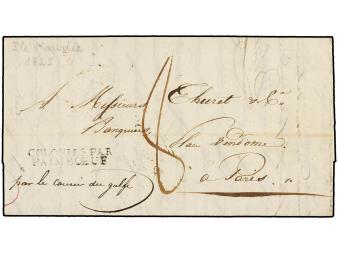 Ile Maurice
1825
A Messieurs Thuret & Cie
Banquiers
Place Vendome
a Paris
COLONIES PAR
PAIMBŒUF
par le courrier du golfe